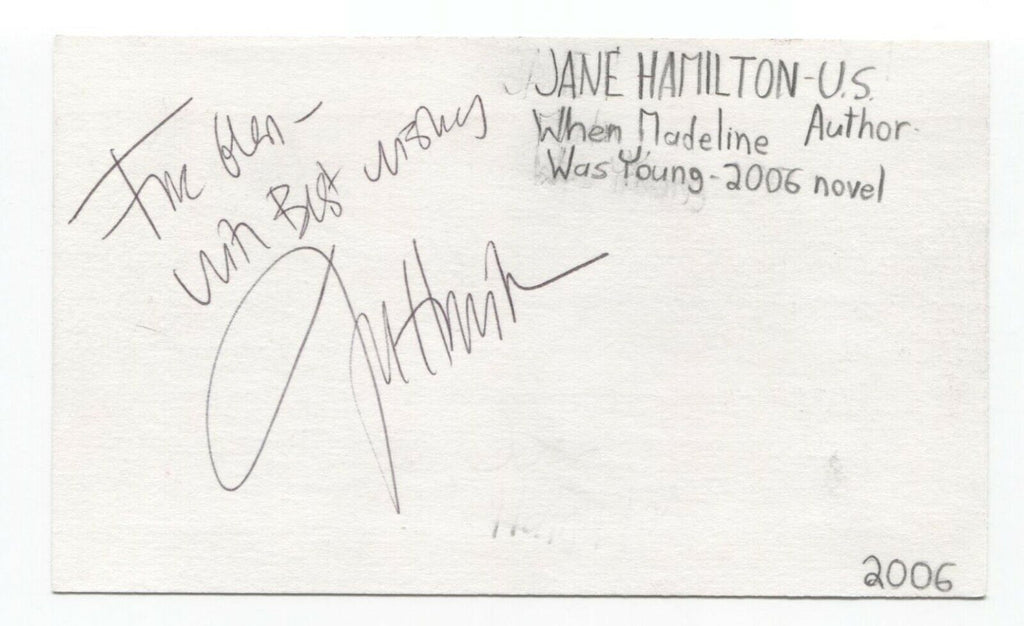 For Glen -
with Best wishes
Jane Hamilton
JANE HAMILTON - U.S.
When Madeline Author.
Was Young - 2006 novel
2006